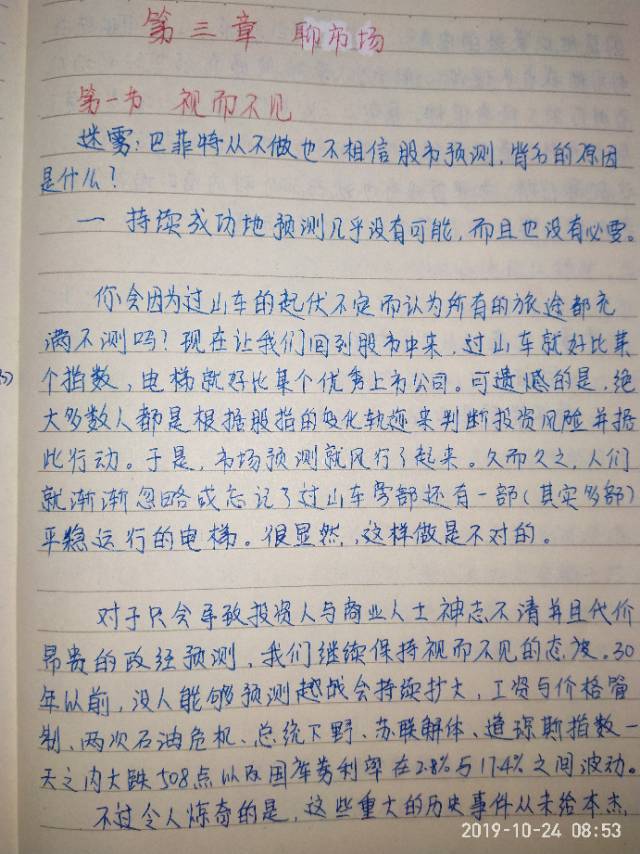 第三章 聊市场
第一节 视而不见
迷雾：巴菲特从不做也不相信股市预测，背后的原因
是什么？
一 持续成功地预测几乎没有可能，而且也没有必要。
你会因为过山车的起伏不定而认为所有的旅途都充
满不测吗？现在让我们回到股市中来，过山车就好比某
个指数，电梯就好比某个优秀上市公司。可遗憾的是，绝
大多数人都是根据股指的变化轨迹来判断投资风险并据
此行动。于是，市场预测就风行了起来。久而久之，人们
就渐渐忽略或忘记了过山车旁部还有一部（其实多部）
平稳运行的电梯。很显然，这样做是不对的。
对于只会导致投资人与商业人士神志不清并且代价
昂贵的政经预测，我们继续保持视而不见的态度。30
年以前，没人能够预测越战会持续扩大，工资与价格管
制、两次石油危机、总统下野、苏联解体、道琼斯指数一
天之内大跌508点以及国库券利率在2.8%与17.4%之间波动。
不过令人惊奇的是，这些重大的历史事件从未给本杰.
2019-10-24 08:53